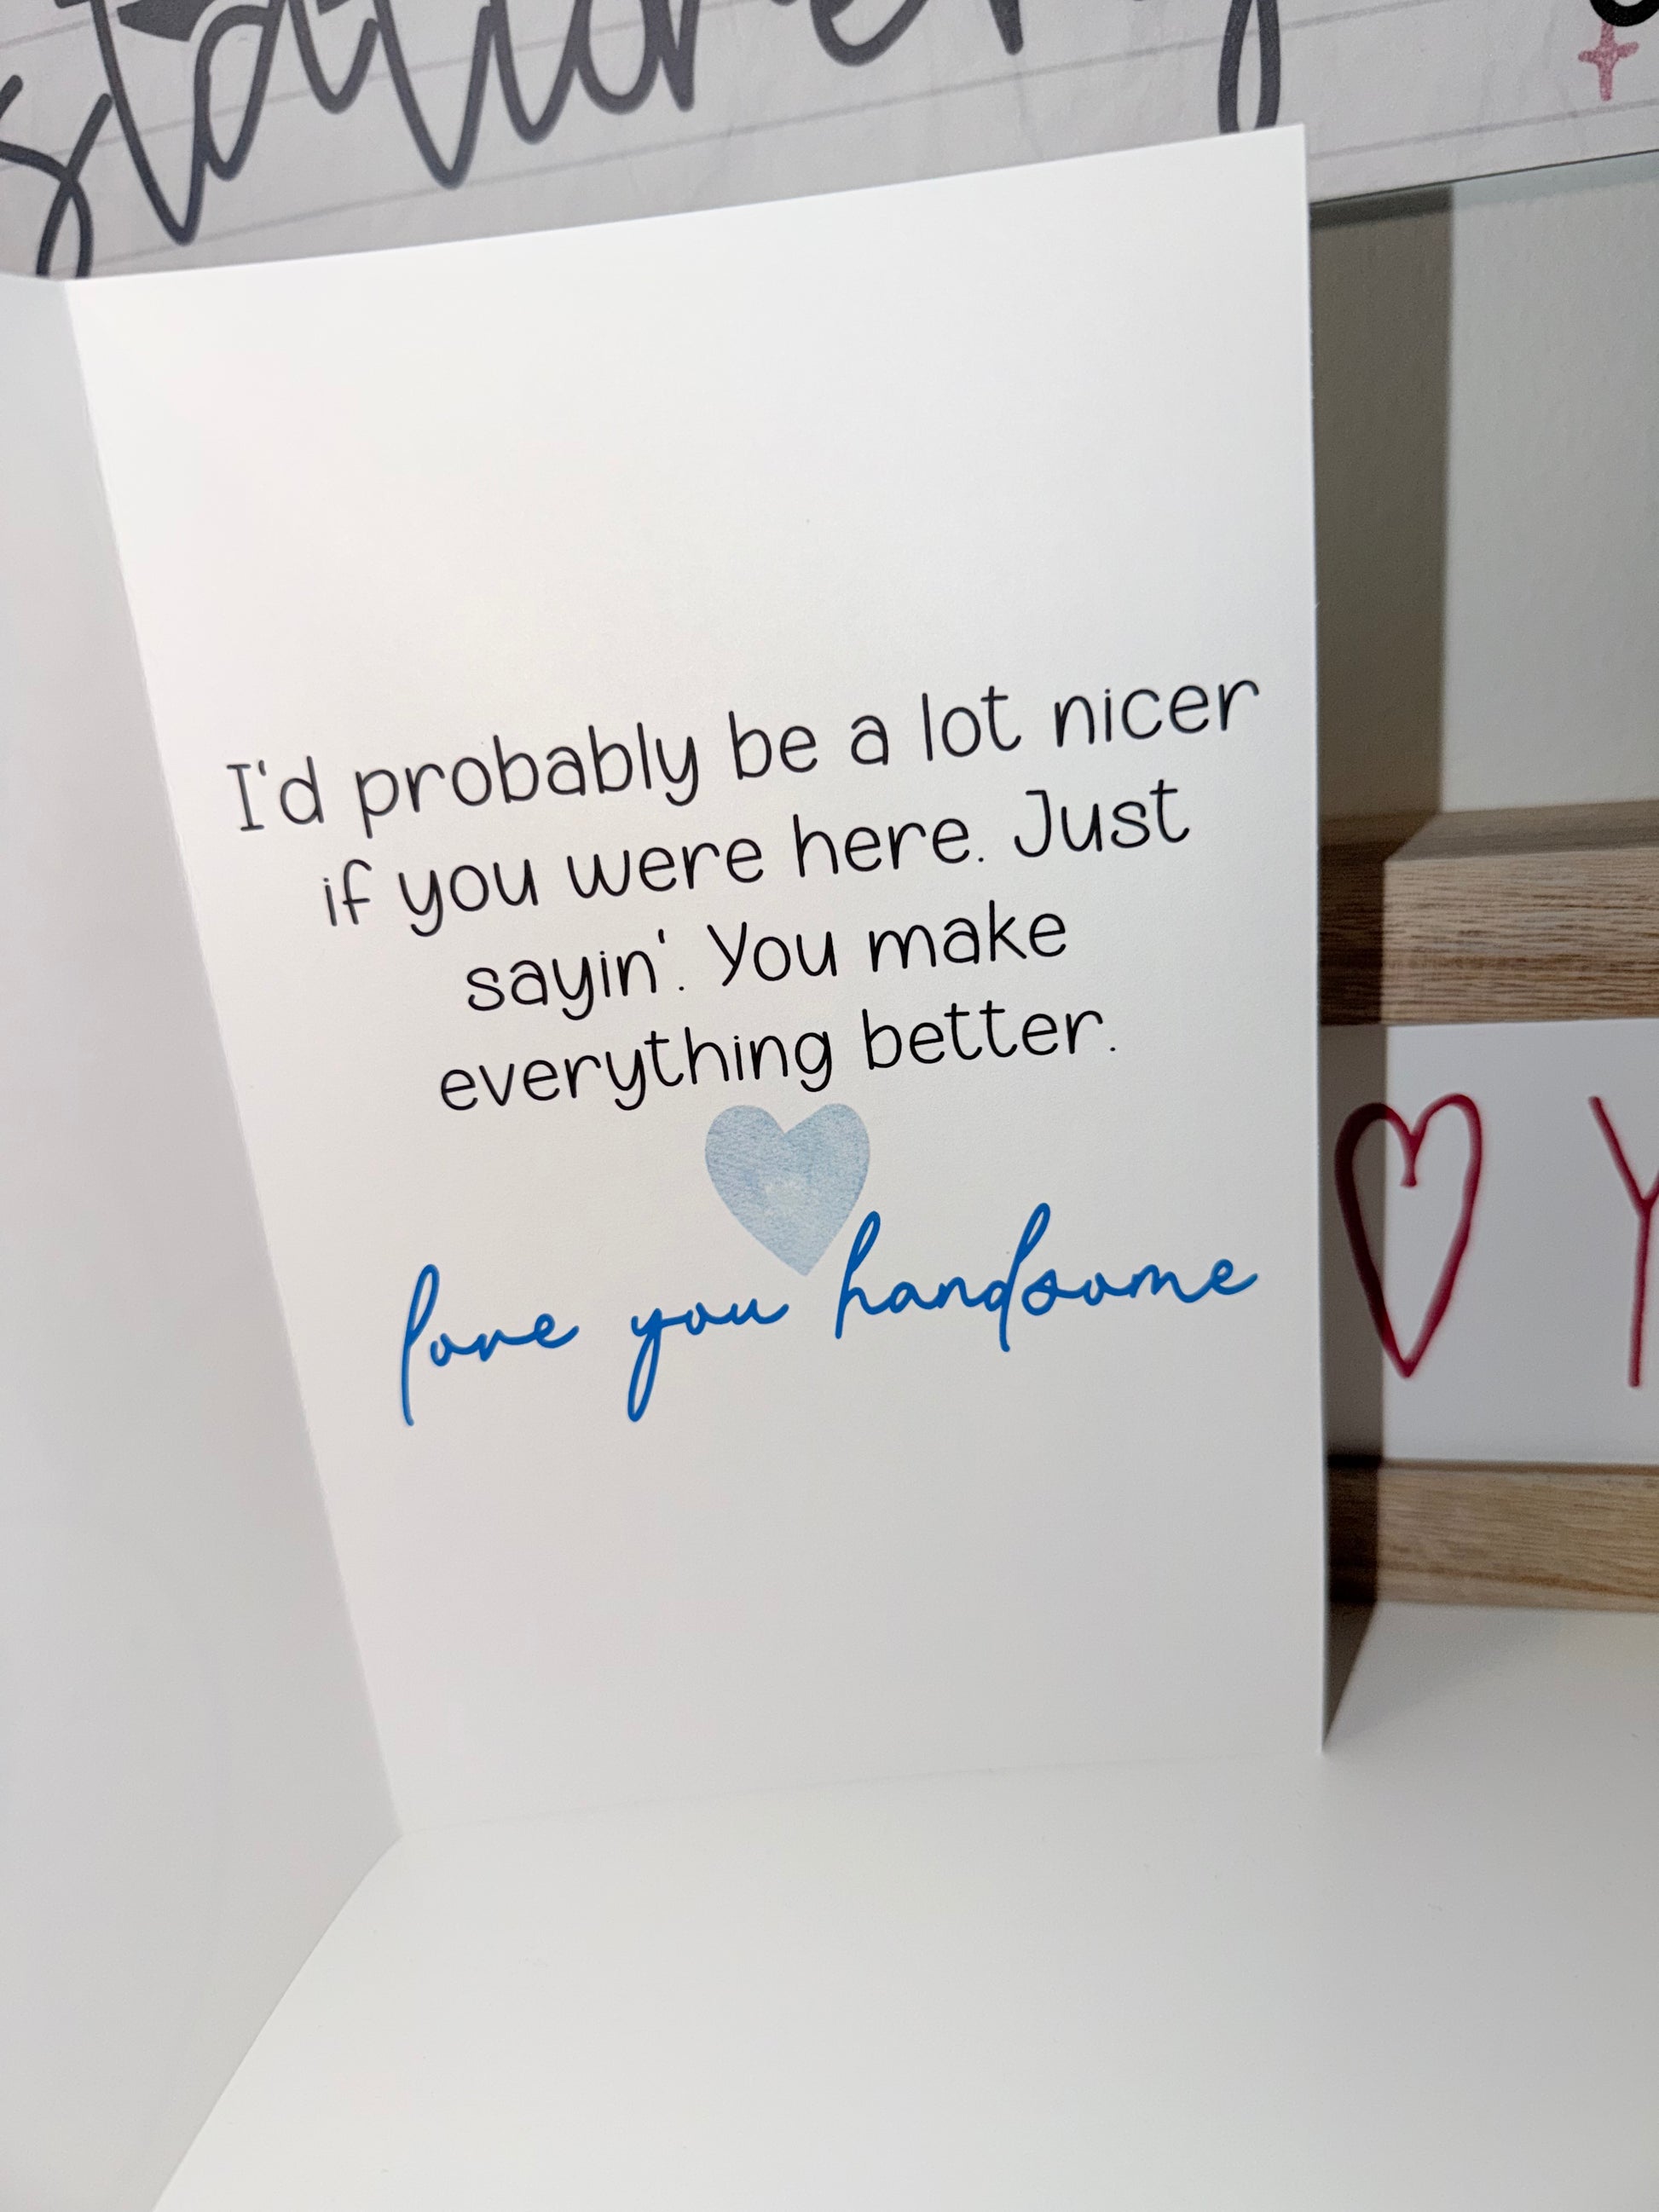 I'd probably be a lot nicer
if you were here. Just
sayin'. You make
everything better.
love you handsome
Y